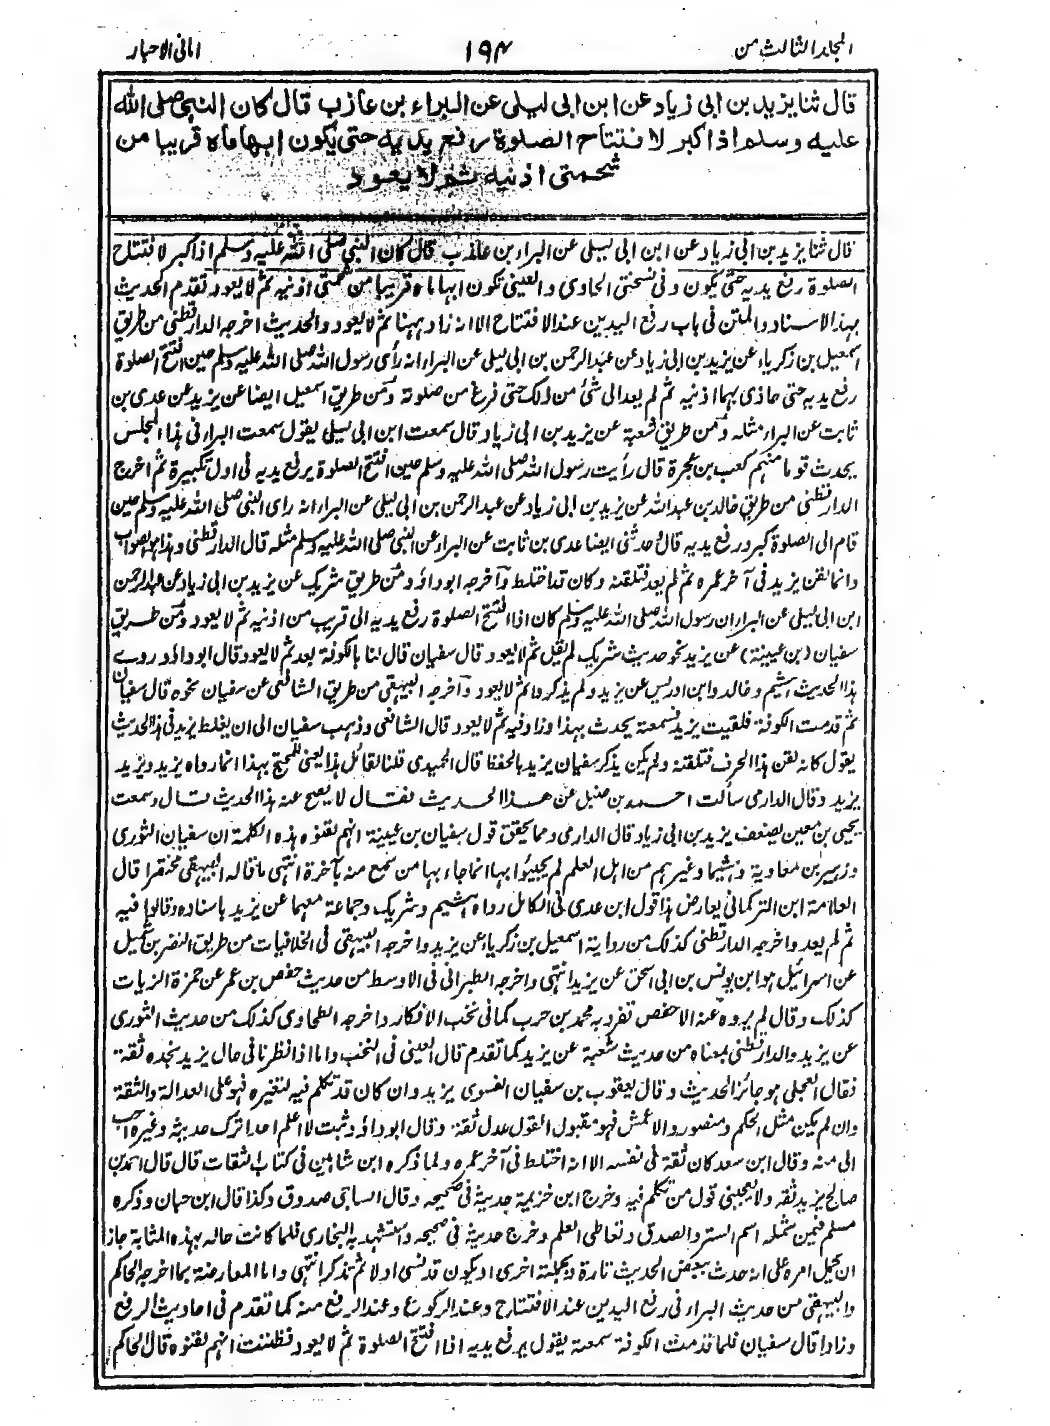 المجلد الثالث من
١٩٤
امانی الاحبار
قال ثنا يزيد بن ابی زياد عن ابن ابی ليلی عن البراء بن عازب قال كان النبی صلی الله
عليه وسلم اذا كبر لافتتاح الصلوة رفع يديه حتی يكون ابهاماه قريبا من
شحمتی اذنيه ثم لا يعود
قال ثنا يزيد بن ابی زياد عن ابن ابی ليلی عن البراء بن عازب قال كان النبی صلی الله عليه وسلم اذا كبر لافتتاح
الصلوة رفع يديه حتی يكون وفی نسختی الحاوی والعينی تكون ابهاماه قريبا من شحمتی اذنيه ثم لا يعود تقدم الحديث
بهذا الاسناد والمتن فی باب رفع اليدين عند الافتتاح الا انه زاد ههنا ثم لا يعود والحديث اخرجه الدارقطنی من طريق
اسمعيل بن زكرياء عن يزيد بن ابی زياد عن عبدالرحمن بن ابی ليلی عن البراء انه رأی رسول الله صلی الله عليه وسلم حين افتتح الصلوة
رفع يديه حتی حاذی بهما اذنيه ثم لم يعد الی شئ من ذلك حتی فرغ من صلوته ومن طريق اسمعيل ايضا عن يزيد عن عدی بن
ثابت عن البراء مثله ومن طريق شعبة عن يزيد بن ابی زياد قال سمعت ابن ابی ليلی يقول سمعت البراء فی هذا المجلس
يحدث قوما منهم كعب بن عجرة قال رأيت رسول الله صلی الله عليه وسلم حين افتتح الصلوة يرفع يديه فی اول تكبيرة ثم اخرج
الدارقطنی من طريق خالد بن عبدالله عن يزيد بن ابی زياد عن عبدالرحمن بن ابی ليلی عن البراء انه رای النبی صلی الله عليه وسلم حين
قام الی الصلوة كبر ورفع يديه قال وحدثنی ايضا عدی بن ثابت عن البراء عن النبی صلی الله عليه وسلم مثله قال الدارقطنی وهذا هو الصواب
وانما لقن يزيد فی آخر عمره ثم لم يعد فتلقنه وكان قد اختلط وآخرجه ابوداؤد ومن طريق شريك عن يزيد بن ابی زياد عن عبدالرحمن
ابن ابی ليلی عن البراء ان رسول الله صلی الله عليه وسلم كان اذا افتتح الصلوة رفع يديه الی قريب من اذنيه ثم لا يعود ومن طريق
سفيان (بن عيينة) عن يزيد نحو حديث شريك لم يقل ثم لا يعود قال سفيان قال لنا بالكوفة بعد ثم لا يعود قال ابوداؤد روے
هذا الحديث هشيم وخالد وابن ادريس عن يزيد ولم يذكروا ثم لا يعود وآخرجه البيهقی من طريق الشافعی عن سفيان نحوه قال سفيان
ثم قدمت الكوفة فلقيت يزيد فسمعته يحدث بهذا وزاد فيه ثم لا يعود قال الشافعی وذهب سفيان الی ان يغلط يزيد فی هذا الحديث
يقول كانه لقن هذا الحرف فتلقنه ولم يكن يذكر سفيان يزيد بالحفظ قال الحميدی قلنا لقائل هذا يعنی للمحتج بهذا انما رواه يزيد ويزيد
يزيد وقال الدارمی سألت احمد بن حنبل عن هذا الحديث فقال لا يصح عنه هذا الحديث قال وسمعت
يحيی بن معين يضعف يزيد بن ابی زياد قال الدارمی ومما يحقق قول سفيان بن عيينة انهم لقنوه هذه الكلمة ان سفيان الثوری
وزهير بن معاوية وهشيما وغيرهم من اهل العلم لم يجيئوا بها انما جاء بها من سمع منه بآخرة انتهی ما قاله البيهقی مختصرا قال
العلامة ابن التركمانی يعارض هذا قول ابن عدی فی الكامل رواه هشيم وشريك وجماعة معهما عن يزيد باسناده وقالوا فيه
ثم لم يعد واخرجه الدارقطنی كذلك من رواية اسمعيل بن زكرياء عن يزيد واخرجه البيهقی فی الخلافيات من طريق النضر بن شميل
عن اسرائيل هو ابن يونس بن ابی اسحق عن يزيد انتهی واخرجه الطبرانی فی الاوسط من حديث حفص بن عمر عن حمزة الزيات
كذلك وقال لم يروه عنه الا حفص تفرد به محمد بن حرب كما فی نخب الافكار واخرجه الطحاوی كذلك من حديث الثوری
عن يزيد والدارقطنی بمعناه من حديث شعبة عن يزيد كما تقدم قال العينی فی النخب واما اذا نظرنا فی حال يزيد نجده ثقة
فقال العجلی هو جائز الحديث وقال يعقوب بن سفيان الفسوی يزيد وان كان قد تكلم فيه لتغيره فهو علی العدالة والثقة
وان لم يكن مثل الحكم ومنصور والاعمش فهو مقبول القول عدل ثقة وقال ابوداؤد ثبت لا اعلم احدا ترك حديثه وغيره احب
الی منه وقال ابن سعد كان ثقة فی نفسه الا انه اختلط فی آخر عمره ولما ذكره ابن شاهين فی كتاب الثقات قال قال احمد بن
صالح يزيد ثقة ولا يعجبنی قول من تكلم فيه وخرج ابن خزيمة حديثه فی صحيحه وقال الساجی صدوق وكذا قال ابن حبان وذكره
مسلم فيمن شمله اسم الستر والصدق وتعاطی العلم وخرج حديثه فی صحيحه واستشهد به البخاری فلما كانت حاله بهذه المثابة جاز
ان يحمل امره علی انه حدث ببعض الحديث تارة وبجملته اخری او يكون قد نسی اولا ثم تذكر انتهی واما المعارضة بما اخرجه الحاكم
والبيهقی من حديث البراء فی رفع اليدين عند الافتتاح وعند الركوع وعند الرفع منه كما تقدم فی احاديث الرفع
وزادا قال سفيان فلما قدمت الكوفة سمعته يقول يرفع يديه اذا افتتح الصلوة ثم لا يعود فظننت انهم لقنوه قال الحاكم